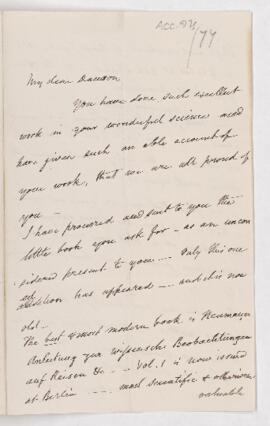 ACC. 975/74
My dear Dawson
You have done such excellent
work in your wonderful science and
have given such an able account of
your work, that we are all proud of
you —
I have procured and sent to you the
little book you ask for — as an
present to you — Only this one
edition has appeared — and it is now
old —
The best & most modern book is Neumayer
Anleitung zur Beobachtungen
auf Reisen &c — Vol. 1 is now issued
at Berlin — most scientific &
valuable